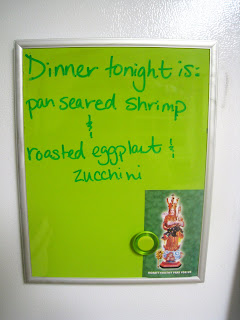 Dinner tonight is:
pan seared shrimp
&
roasted eggplant &
zucchini